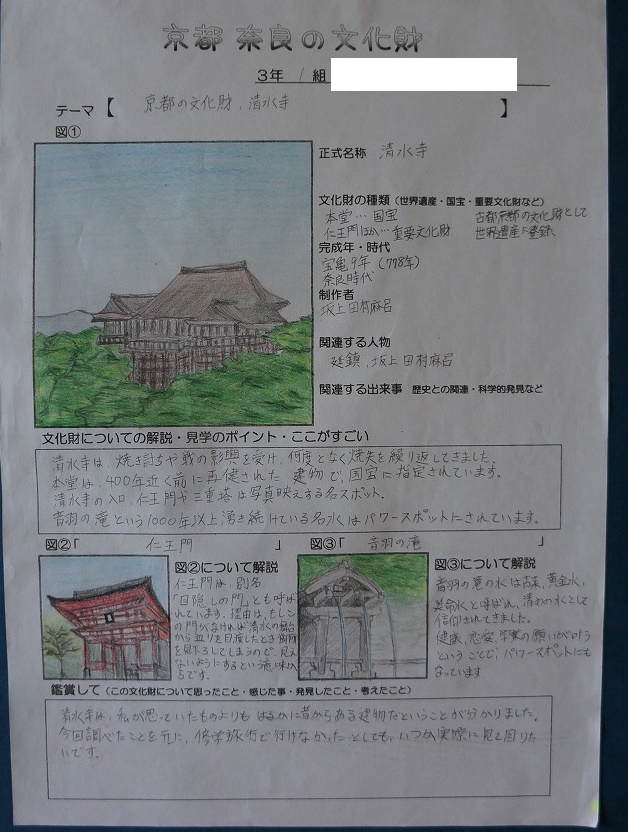 京都 奈良の文化財
3年 1 組
テーマ【 京都の文化財、清水寺 】
図①
正式名称 清水寺
文化財の種類(世界遺産・国宝・重要文化財など)
本堂…国宝 古都京都の文化財として
仁王門ほか…重要文化財 世界遺産に登録
完成年・時代
宝亀9年(778年)
奈良時代
制作者
坂上田村麻呂
関連する人物
延鎮、坂上田村麻呂
関連する出来事 歴史との関連・科学的発見など
文化財についての解説・見学のポイント・ここがすごい
清水寺は、焼き討ちや戦の影響を受け、何度となく焼失を繰り返してきました。
本堂は、400年近く前に再建された建物で、国宝に指定されています。
清水寺の入口、仁王門や三重塔は写真映えする名スポット。
音羽の滝という1000年以上湧き続けている名水はパワースポットにされています。
図②「 仁王門 」 図③「 音羽の滝 」
図②について解説
仁王門は、別名
「目隠しの門」とも呼ば
れています。理由は、もしこ
の門がなければ清水の舞台
から 見渡したとき 御所
を見下ろしてしまうので、見え
ないようにするという意味
です。
図③について解説
音羽の滝の水は古来、黄金水、
延命水と呼ばれ、清めの水として
信仰されてきました。
健康、恋愛、学業の願いがかなう
ということで、パワースポットにも
なっています
鑑賞して(この文化財について思ったこと・感じた事・発見したこと・考えたこと)
清水寺は、私が思っていたものよりも はるかに昔からある建物だということが分かりました。
今回調べたことを元に、修学旅行で行けなかったとしても、いつか実際に見て回りた
いです。